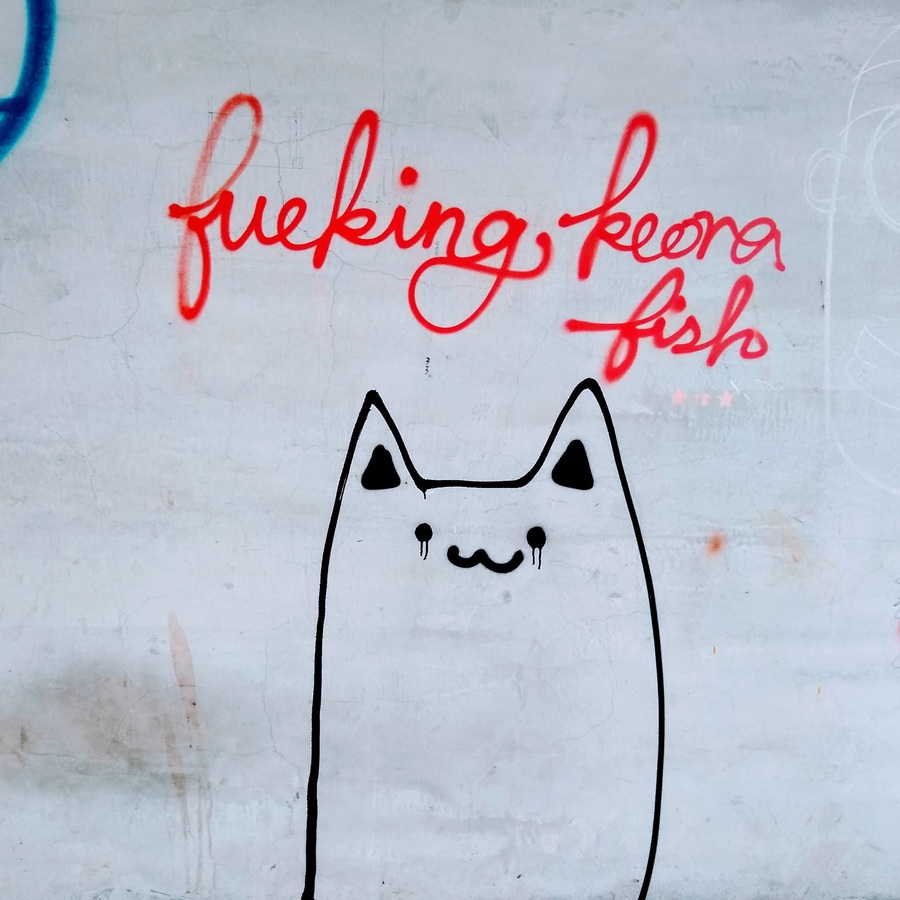 fucking keora
fish